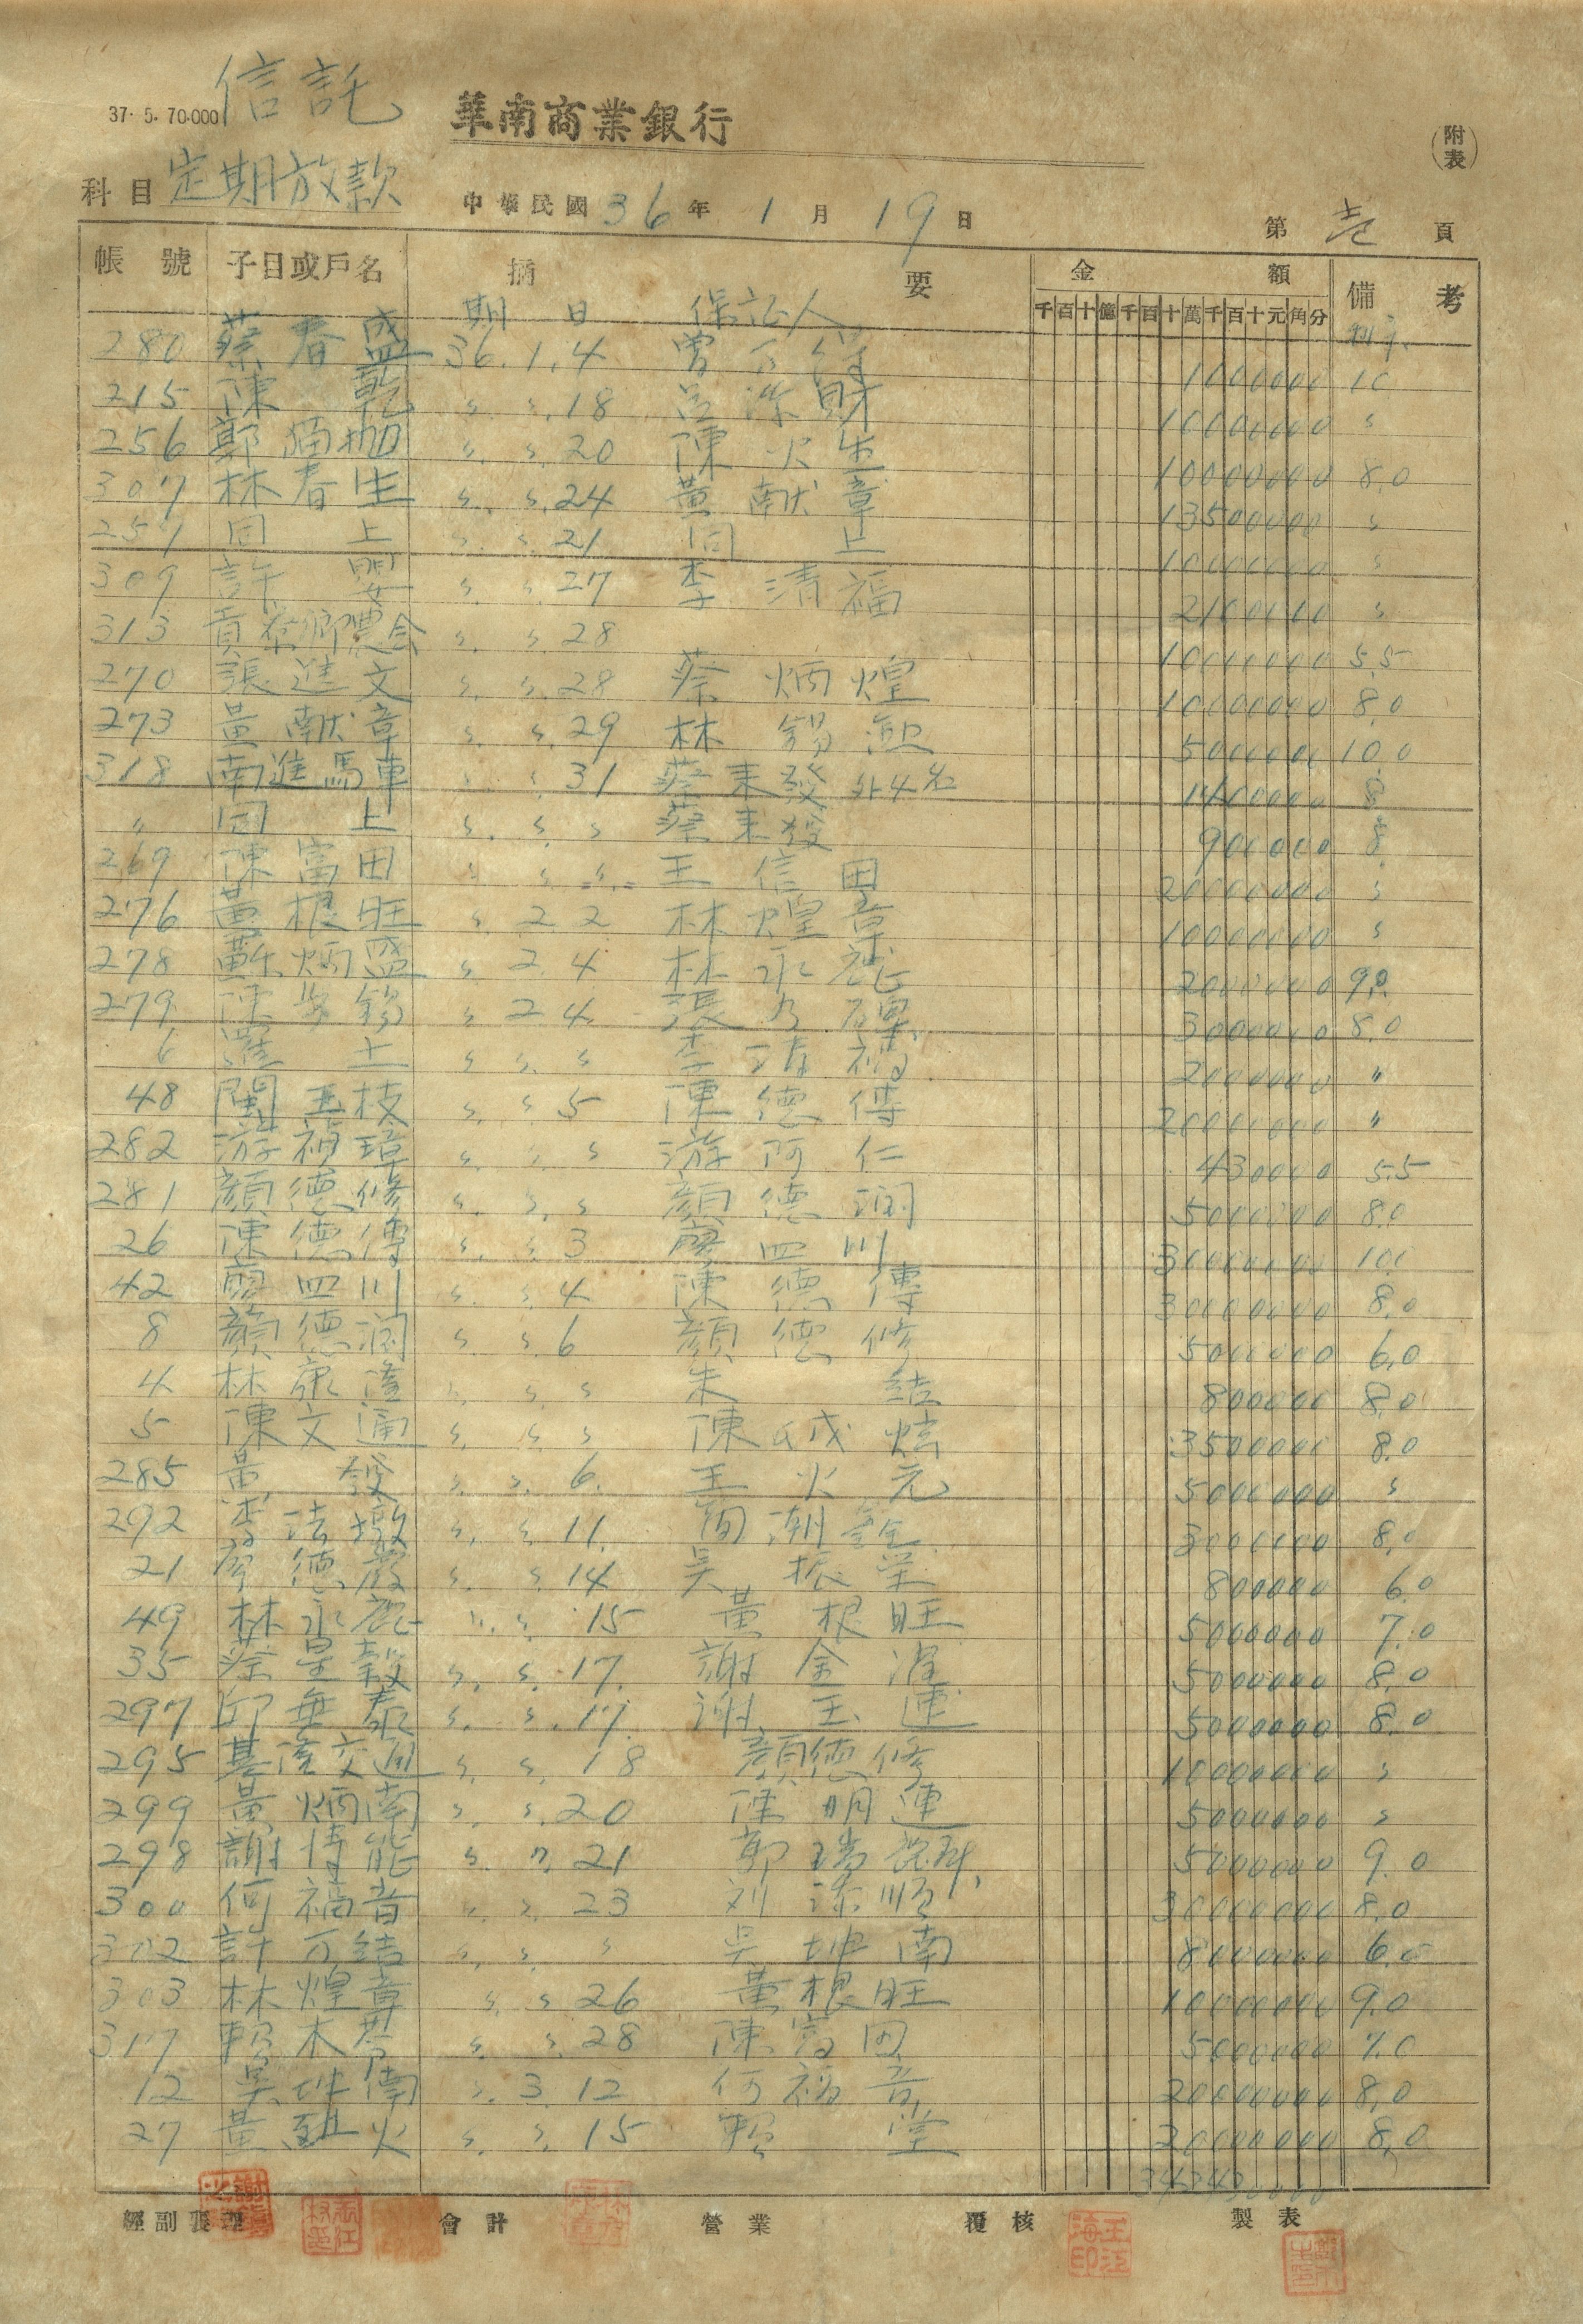 37. 5. 70.000
信託
華南商業銀行
(附表)
科目 定期放款
中華民國 36 年 1 月 19 日
第 壱 頁
帳號 子目或戶名 摘要 金額 備考
千百十億千百十萬千百十元角分
期日 保証人 利子
280 蔡春盛 36.1.4 曽 1000000 10
215 陳乾 〃 〃.18 呂添財 10000000 〃
256 郭 〃 〃.20 陳火生 10000000 8.0
307 林春生 〃 〃.24 黃献章 13500000 〃
257 同上 〃 〃.21 同上 10000000 〃
309 許嬰 〃 〃.27 李清福 2100000 〃
313 貢寮鄉農会 〃 〃.28 10000000 5.5
270 張進文 〃 〃.28 蔡炳煌 10000000 8.0
273 黃献章 〃 〃.29 林錫 5000000 10.0
318 南進馬車 〃 〃.31 蔡来發外4名 8
〃 同上 〃 〃 〃 蔡来發 900000 8
269 陳富田 〃 〃 〃 王信田 20000000 〃
276 黃根旺 〃 2 2 林煌章 10000000 〃
278 蘇炳盛 〃 2 4 林永 2000000 9.0
279 陳 〃 2 4 張乃 3000000 8.0
〃 上 〃 〃 〃 李清福 2000000 〃
48 閩玉枝 〃 〃 5 陳德傳 20000000 〃
282 游福璋 〃 〃 〃 游阿仁 430000 5.5
281 顏德修 〃 〃 〃 顏德潤 5000000 8.0
26 陳德傳 〃 〃 3 廖四川 30000000 10.0
42 廖四川 〃 〃 4 陳德傳 30000000 8.0
8 顏德潤 〃 〃 6 顏德修 5000000 6.0
4 林康隆 〃 〃 〃 朱結 800000 8.0
5 陳文通 〃 〃 〃 陳成炫 3500000 8.0
285 黃發 〃 〃 6. 王火元 5000000 〃
292 李法墩 〃 〃 11. 簡潮 3000000 8.0
21 廖德 〃 〃 14 吳振栄 800000 6.0
49 林永 〃 〃 15 黃根旺 5000000 7.0
35 蔡星穀 〃 〃 17. 謝金 5000000 8.0
297 邱無泰 〃 〃 17. 謝玉連 5000000 8.0
295 基隆交通 〃 〃 18 顏德修 10000000 〃
299 黃炳南 〃 〃.20 陳明連 5000000 〃
298 謝博能 〃 〃 21 郭瑞麟 5000000 9.0
300 何福音 〃 〃 23 刘添順 30000000 8.0
302 許万結 〃 〃 〃 吳坤南 8000000 6.0
303 林煌章 〃 〃 26 黃根旺 10000000 9.0
317 賴木 〃 〃 28 陳富田 5000000 7.0
12 吳坤南 〃 3 12 何福音 20000000 8.0
27 黃火 〃 〃 15 賴堂 20000000 8.0
經副襄理 會計 營業 覆核 製表
王江海印